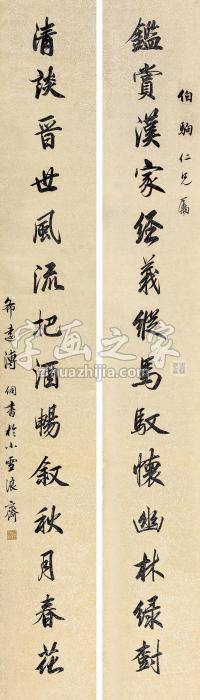 伯駒仁兄屬
鑑賞漢家經義縱馬馭懷幽林綠樹
清談晉世風流把酒暢敘秋月春花
溥侗書於小雪浪齋
字画之家
zhuazhijia.com